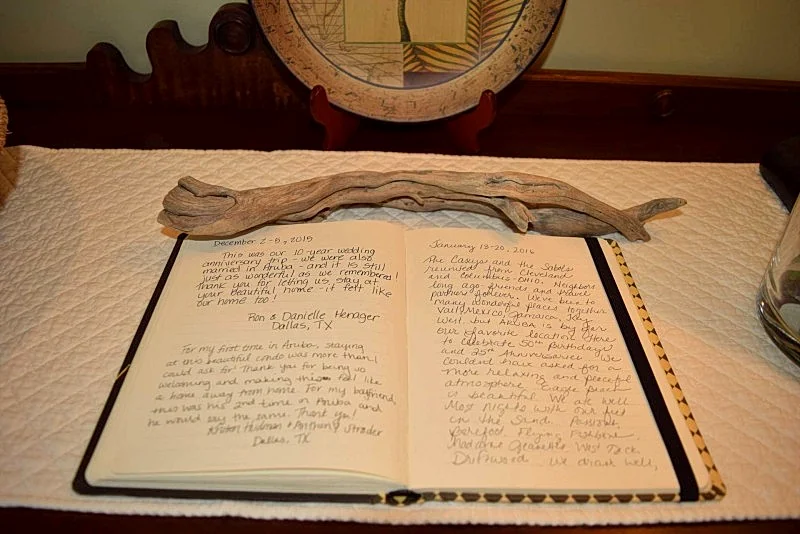 December 2-8, 2015
This was our 10-year wedding
anniversary trip - we were also
married in Aruba - and it is still
just as wonderful as we remembered!
Thank you for letting us stay at
your beautiful home - it felt like
our home too!
Ron & Danielle Henager
Dallas, TX
For my first time in Aruba, staying
at this beautiful condo was more than I
could ask for! Thank you for being so
welcoming and making this feel like
a home away from home. For my boyfriend,
this was his 2nd time in Aruba and
he would say the same. Thank you!
& Anthony Strader
Dallas, TX
January 13-20, 2016
The Caseys and the Sabols
reunited from Cleveland
and Columbus OHIO. Neighbors
long ago friends and travel
partners forever. We've been to
Many wonderful places together
Vail, Mexico, Jamaica, Key
West, but Aruba is by far
our favorite location. Here
to celebrate 50th Birthdays
and 25th Anniversaries. We
couldn't have asked for a
more relaxing and peaceful
atmosphere. Eagle Beach
is beautiful. We ate well
Most nights with our feet
in the Sand. Passions,
Barefoot, Flying Fishbone,
Madame Janette, West Deck,
Driftwood. We drank well,